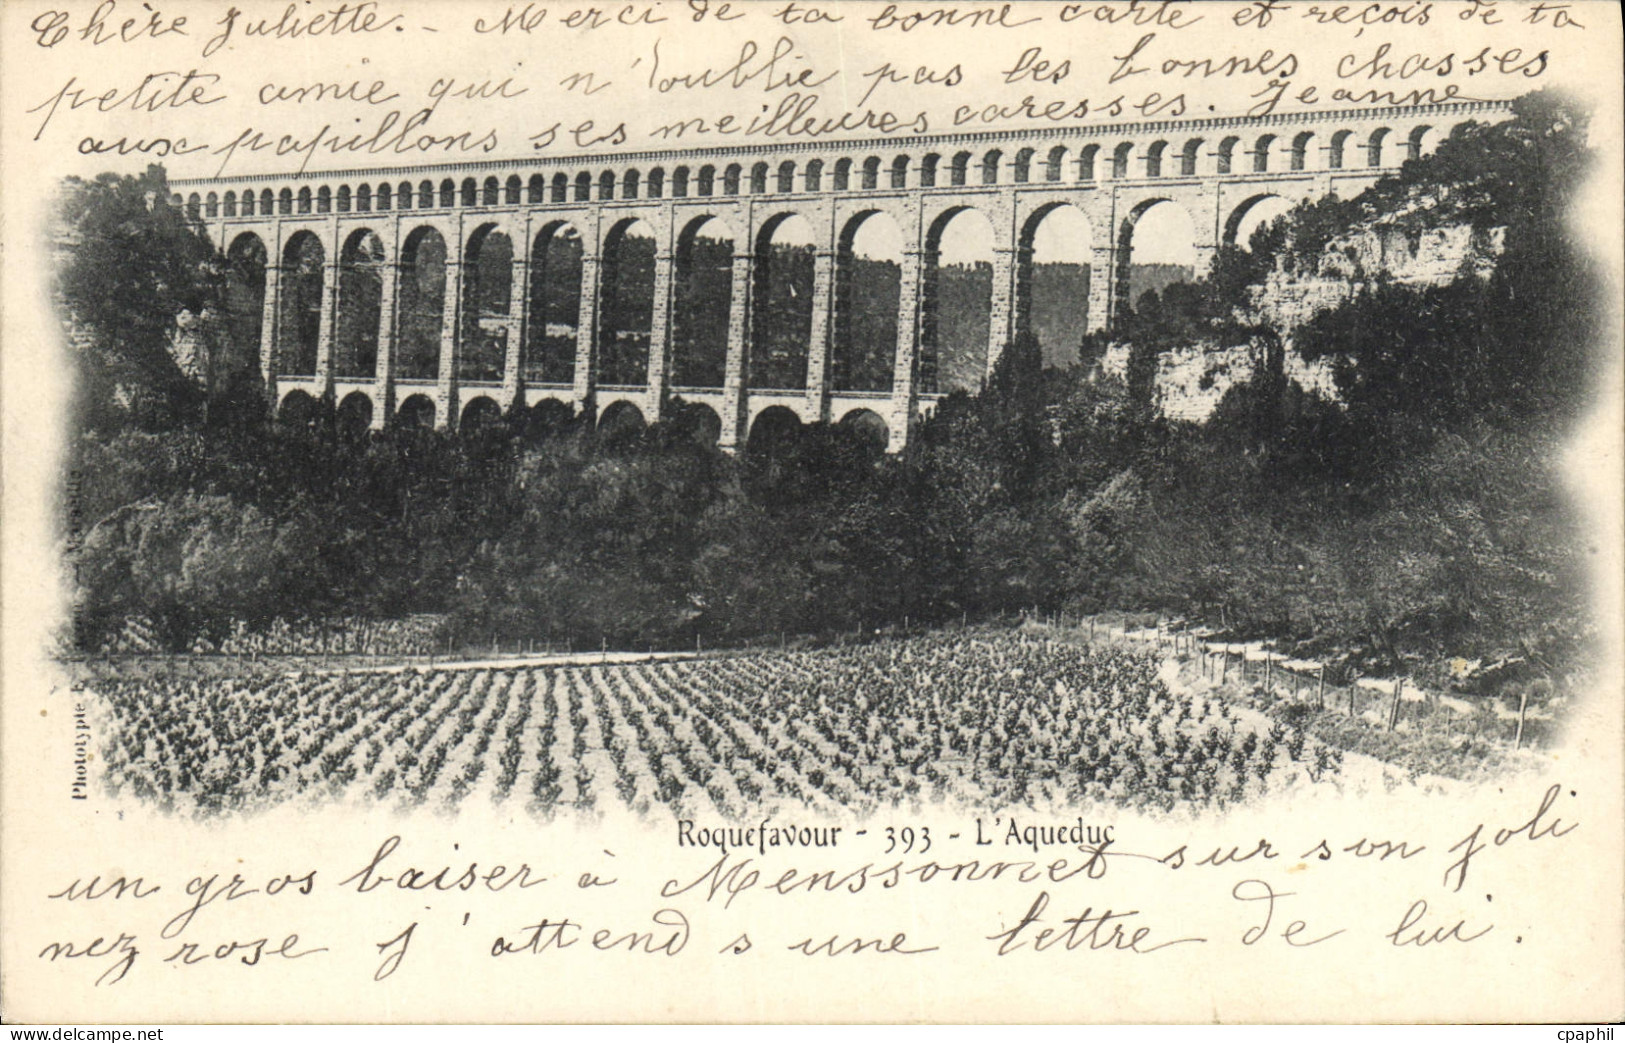 Chère Juliette. - Merci de ta bonne carte et reçois de ta
petite amie qui n'oublie pas les bonnes chasses
aux papillons ses meilleures caresses. Jeanne
Phototypie
Roquefavour - 393 - L'Aqueduc
un gros baiser à sur son joli
nez rose j'attends une lettre de lui.
www.delcampe.net
cpaphil